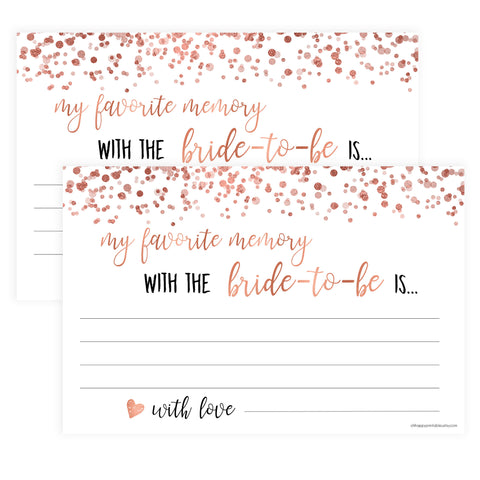 my favorite memory
WITH THE bride-to-be IS...
my favorite memory
WITH THE bride-to-be IS...
with love